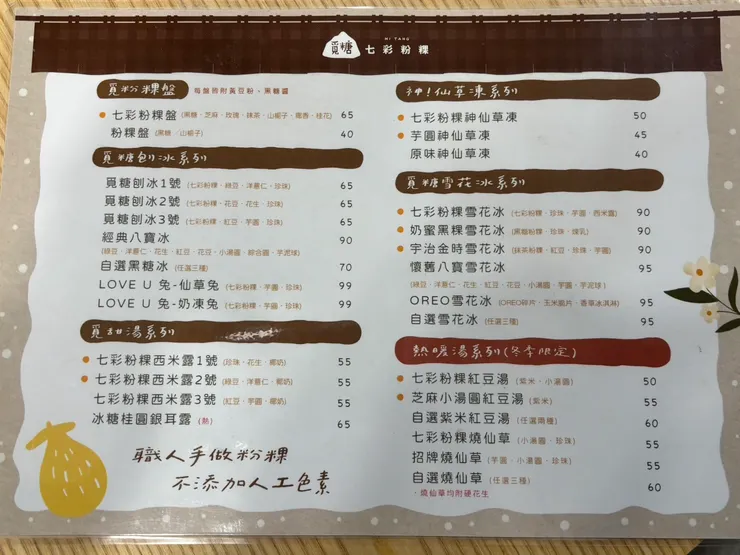 覓糖
MI TANG
七彩粉粿
覓粉粿盤 每盤皆附黃豆粉、黑糖醬
七彩粉粿盤 (黑糖、芝麻、玫瑰、抹茶、山梔子、鐵香、桂花) 65
粉粿盤 (黑糖、山梔子) 40
覓糖刨冰系列
覓糖刨冰1號 (七彩粉粿、綠豆、洋薏仁、珍珠) 65
覓糖刨冰2號 (七彩粉粿、花豆、花生、珍珠) 65
覓糖刨冰3號 (七彩粉粿、紅豆、芋圓、珍珠) 65
經典八寶冰 90
(綠豆、洋薏仁、花生、紅豆、花豆、小湯圓、綜合圓、芋泥球)
自選黑糖冰 (任選三種) 70
LOVE U 兔-仙草兔 (七彩粉粿、芋圓、珍珠) 99
LOVE U 兔-奶凍兔 (七彩粉粿、芋圓、珍珠) 99
覓甜湯系列
七彩粉粿西米露1號 (珍珠、花生、椰奶) 55
七彩粉粿西米露2號 (綠豆、洋薏仁、椰奶) 55
七彩粉粿西米露3號 (紅豆、芋圓、椰奶) 55
冰糖桂圓銀耳露 (熱) 65
職人手做粉粿
不添加人工色素
神!仙草凍系列
七彩粉粿神仙草凍 50
芋圓神仙草凍 45
原味神仙草凍 40
覓糖雪花冰系列
七彩粉粿雪花冰 (七彩粉粿、珍珠、芋圓、西米露) 90
奶蜜黑粿雪花冰 (黑糖粉粿、珍珠、煉乳) 90
宇治金時雪花冰 (抹茶粉粿、紅豆、珍珠、芋圓) 90
懷舊八寶雪花冰 95
(綠豆、洋薏仁、花生、紅豆、花豆、小湯圓、芋圓、芋泥球)
OREO雪花冰 (OREO碎片、玉米脆片、香草冰淇淋) 95
自選雪花冰 (任選三種) 95
熱暖湯系列(冬季限定)
七彩粉粿紅豆湯 (紫米、小湯圓) 50
芝麻小湯圓紅豆湯 (紫米) 55
自選紫米紅豆湯 (任選兩種) 60
七彩粉粿燒仙草 (小湯圓、珍珠) 55
招牌燒仙草 (芋圓、小湯圓、珍珠) 55
自選燒仙草 (任選三種) 60
*燒仙草均附硬花生